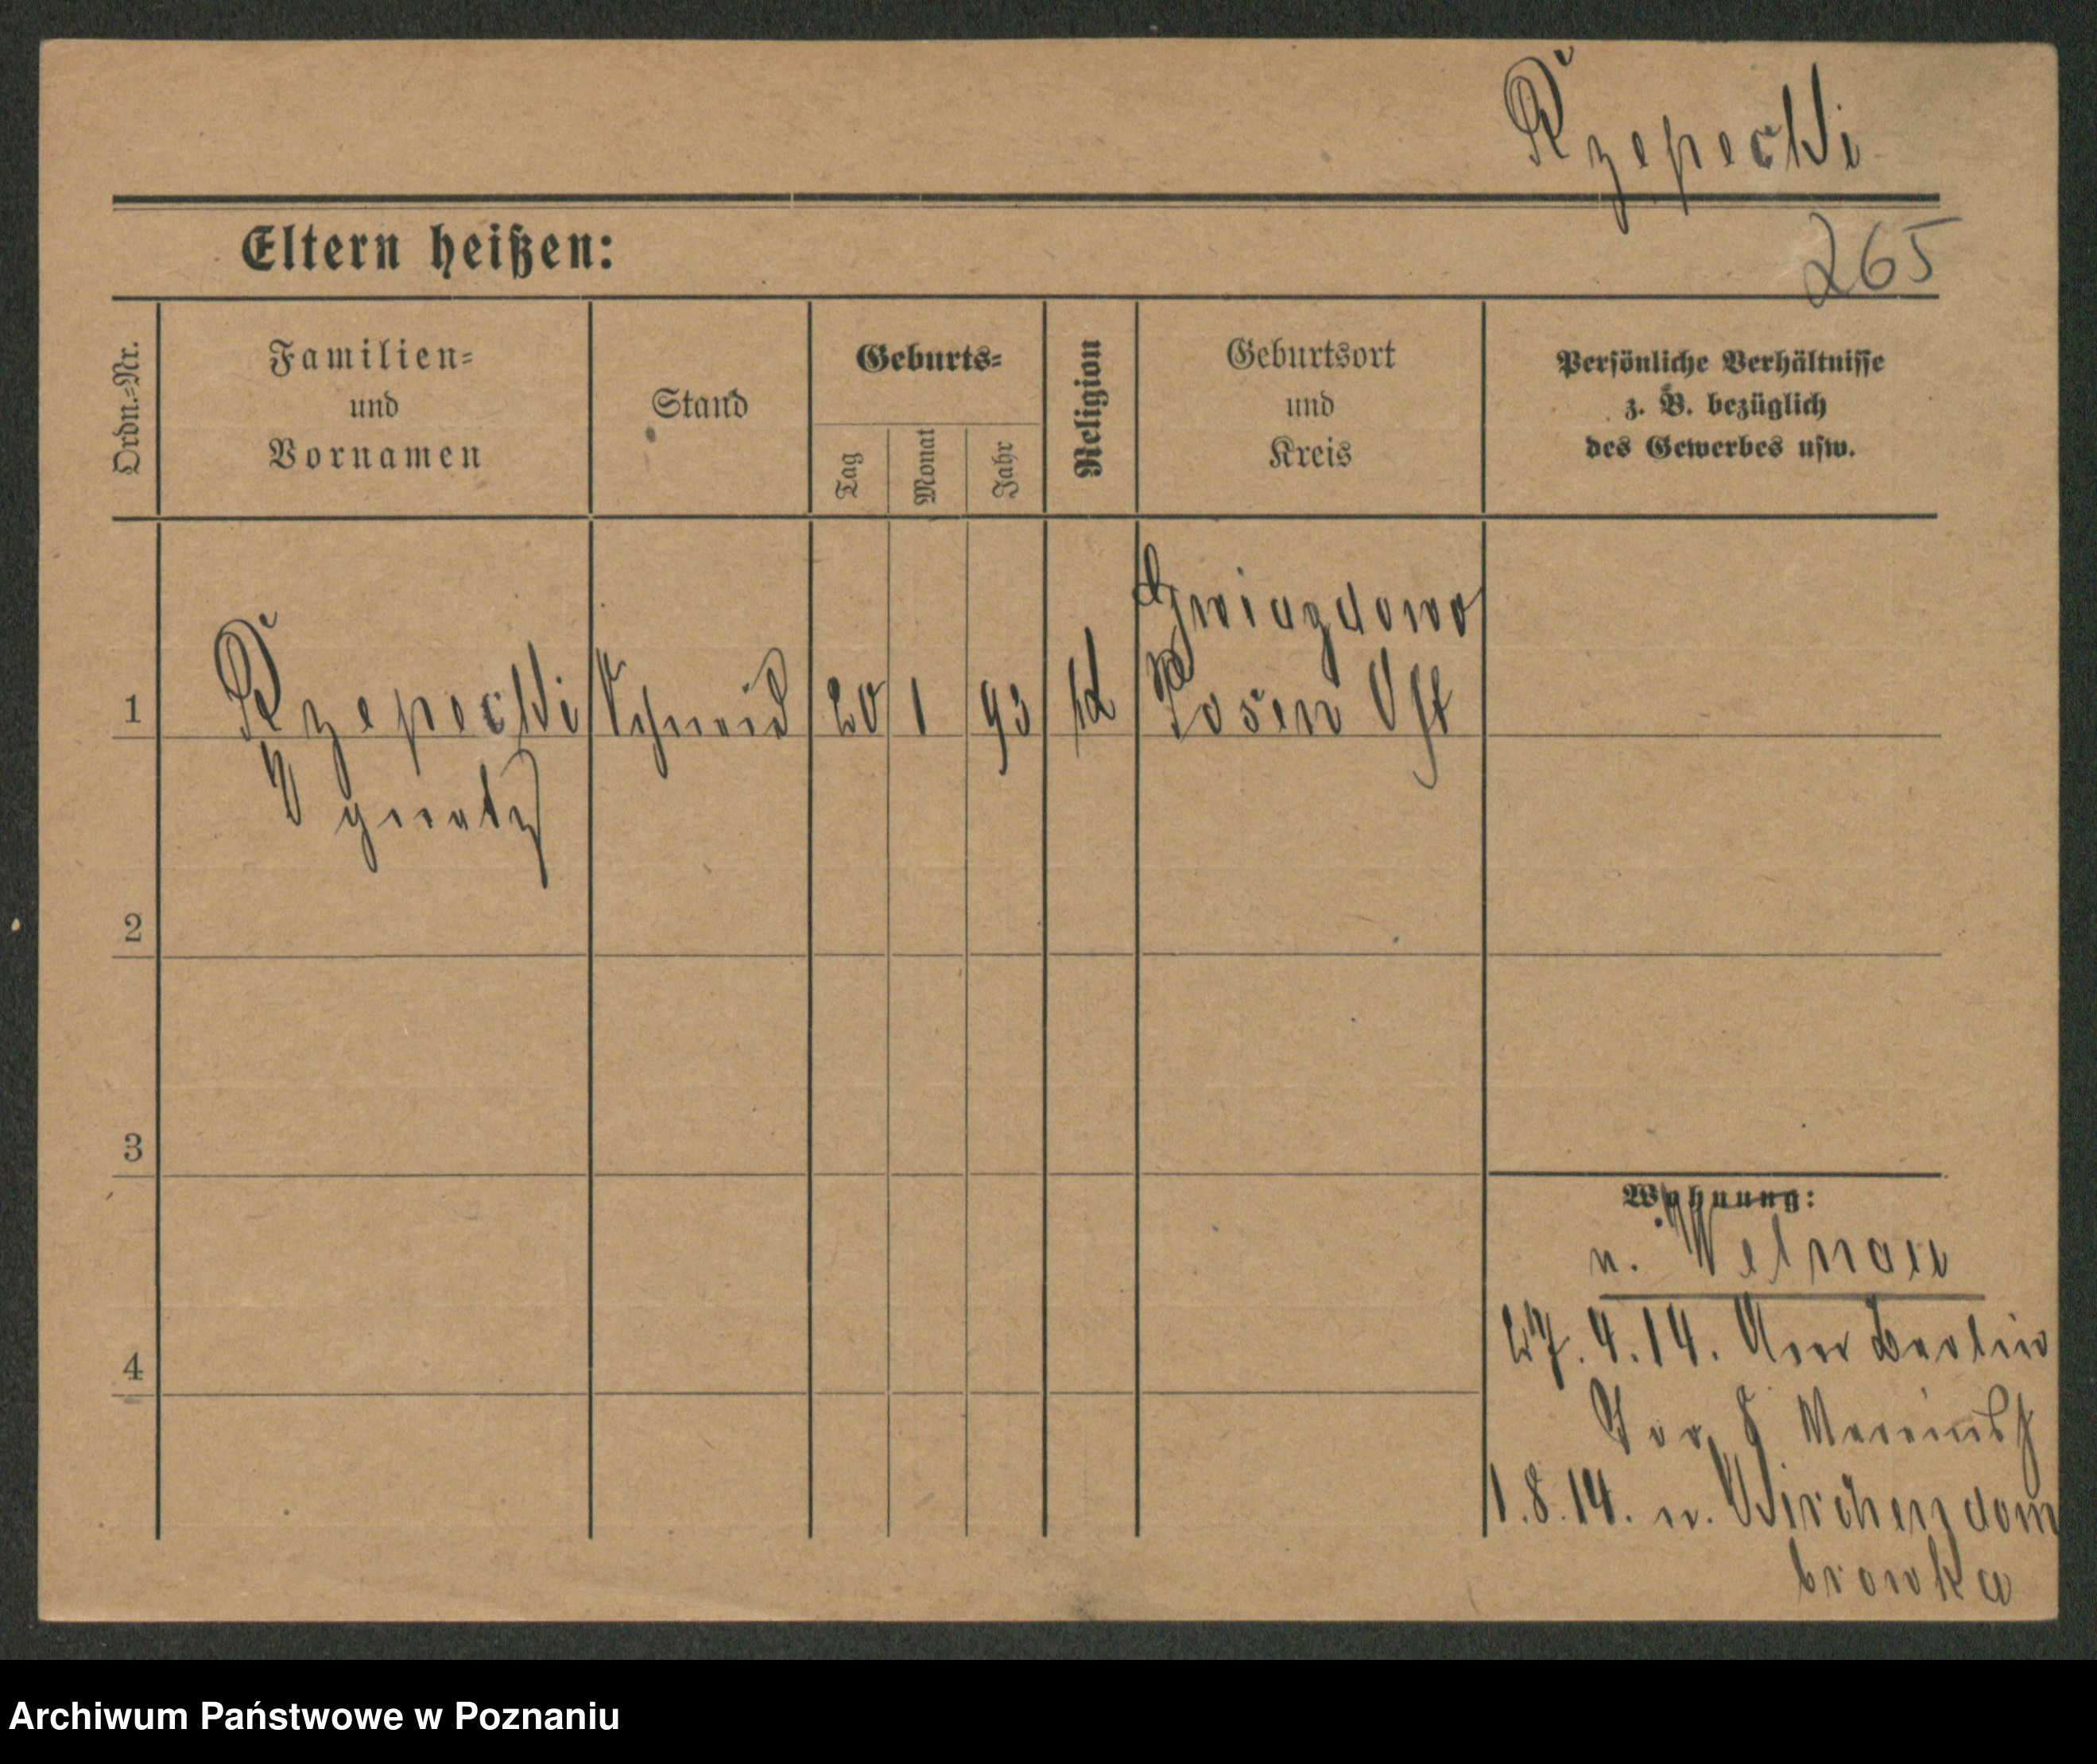 Rzepecki
265
Eltern heißen:
Ordn.=Nr.
Familien=
und
Vornamen
Stand
Geburts=
Tag
Monat
Jahr
Religion
Geburtsort
und
Kreis
Persönliche Verhältnisse
z. B. bezüglich
des Gewerbes usw.
Gwiazdowo
1 Rzepecki Schmied 20 1 93 Posen Ost
Ignatz
2
3
Wohnung:
n. Welnau
27.4.14. Berlin
4
1.8.14. n. Kirchendom
browka
Archiwum Państwowe w Poznaniu